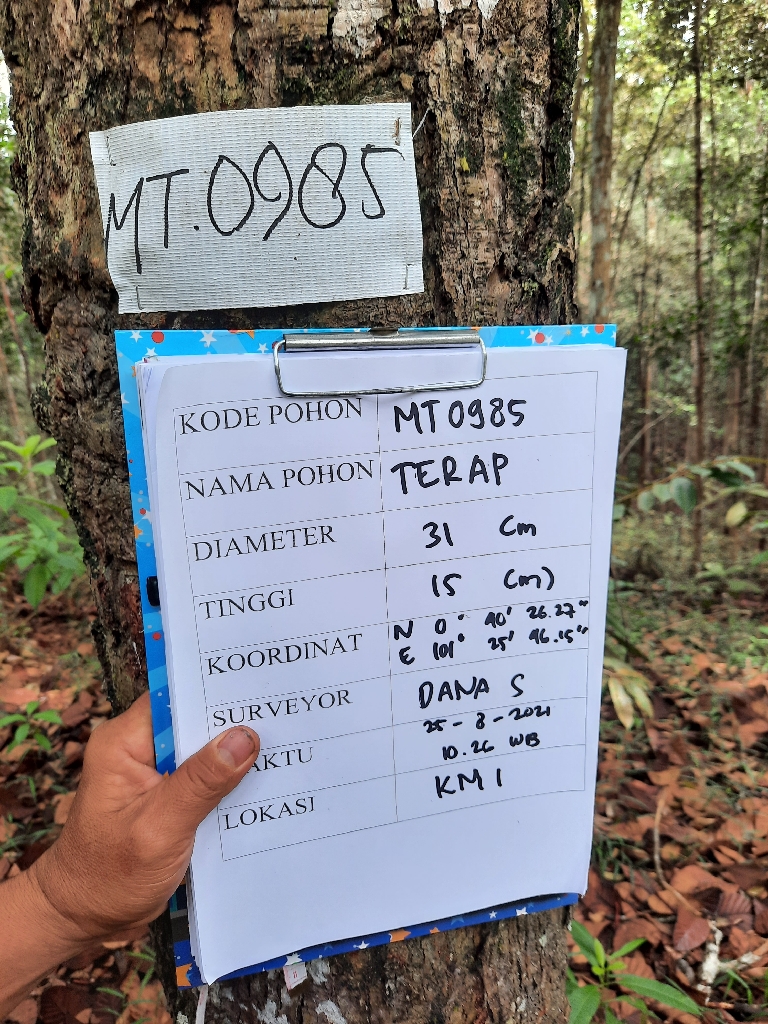 MT.0985
KODE POHON MT0985
NAMA POHON TERAP
DIAMETER 31 Cm
TINGGI 15 (m)
KOORDINAT N 0° 40' 26.27"
E 101° 25' 46.15"
SURVEYOR DANA S
AKTU 25-8-2021
10.26 WIB
LOKASI KM1